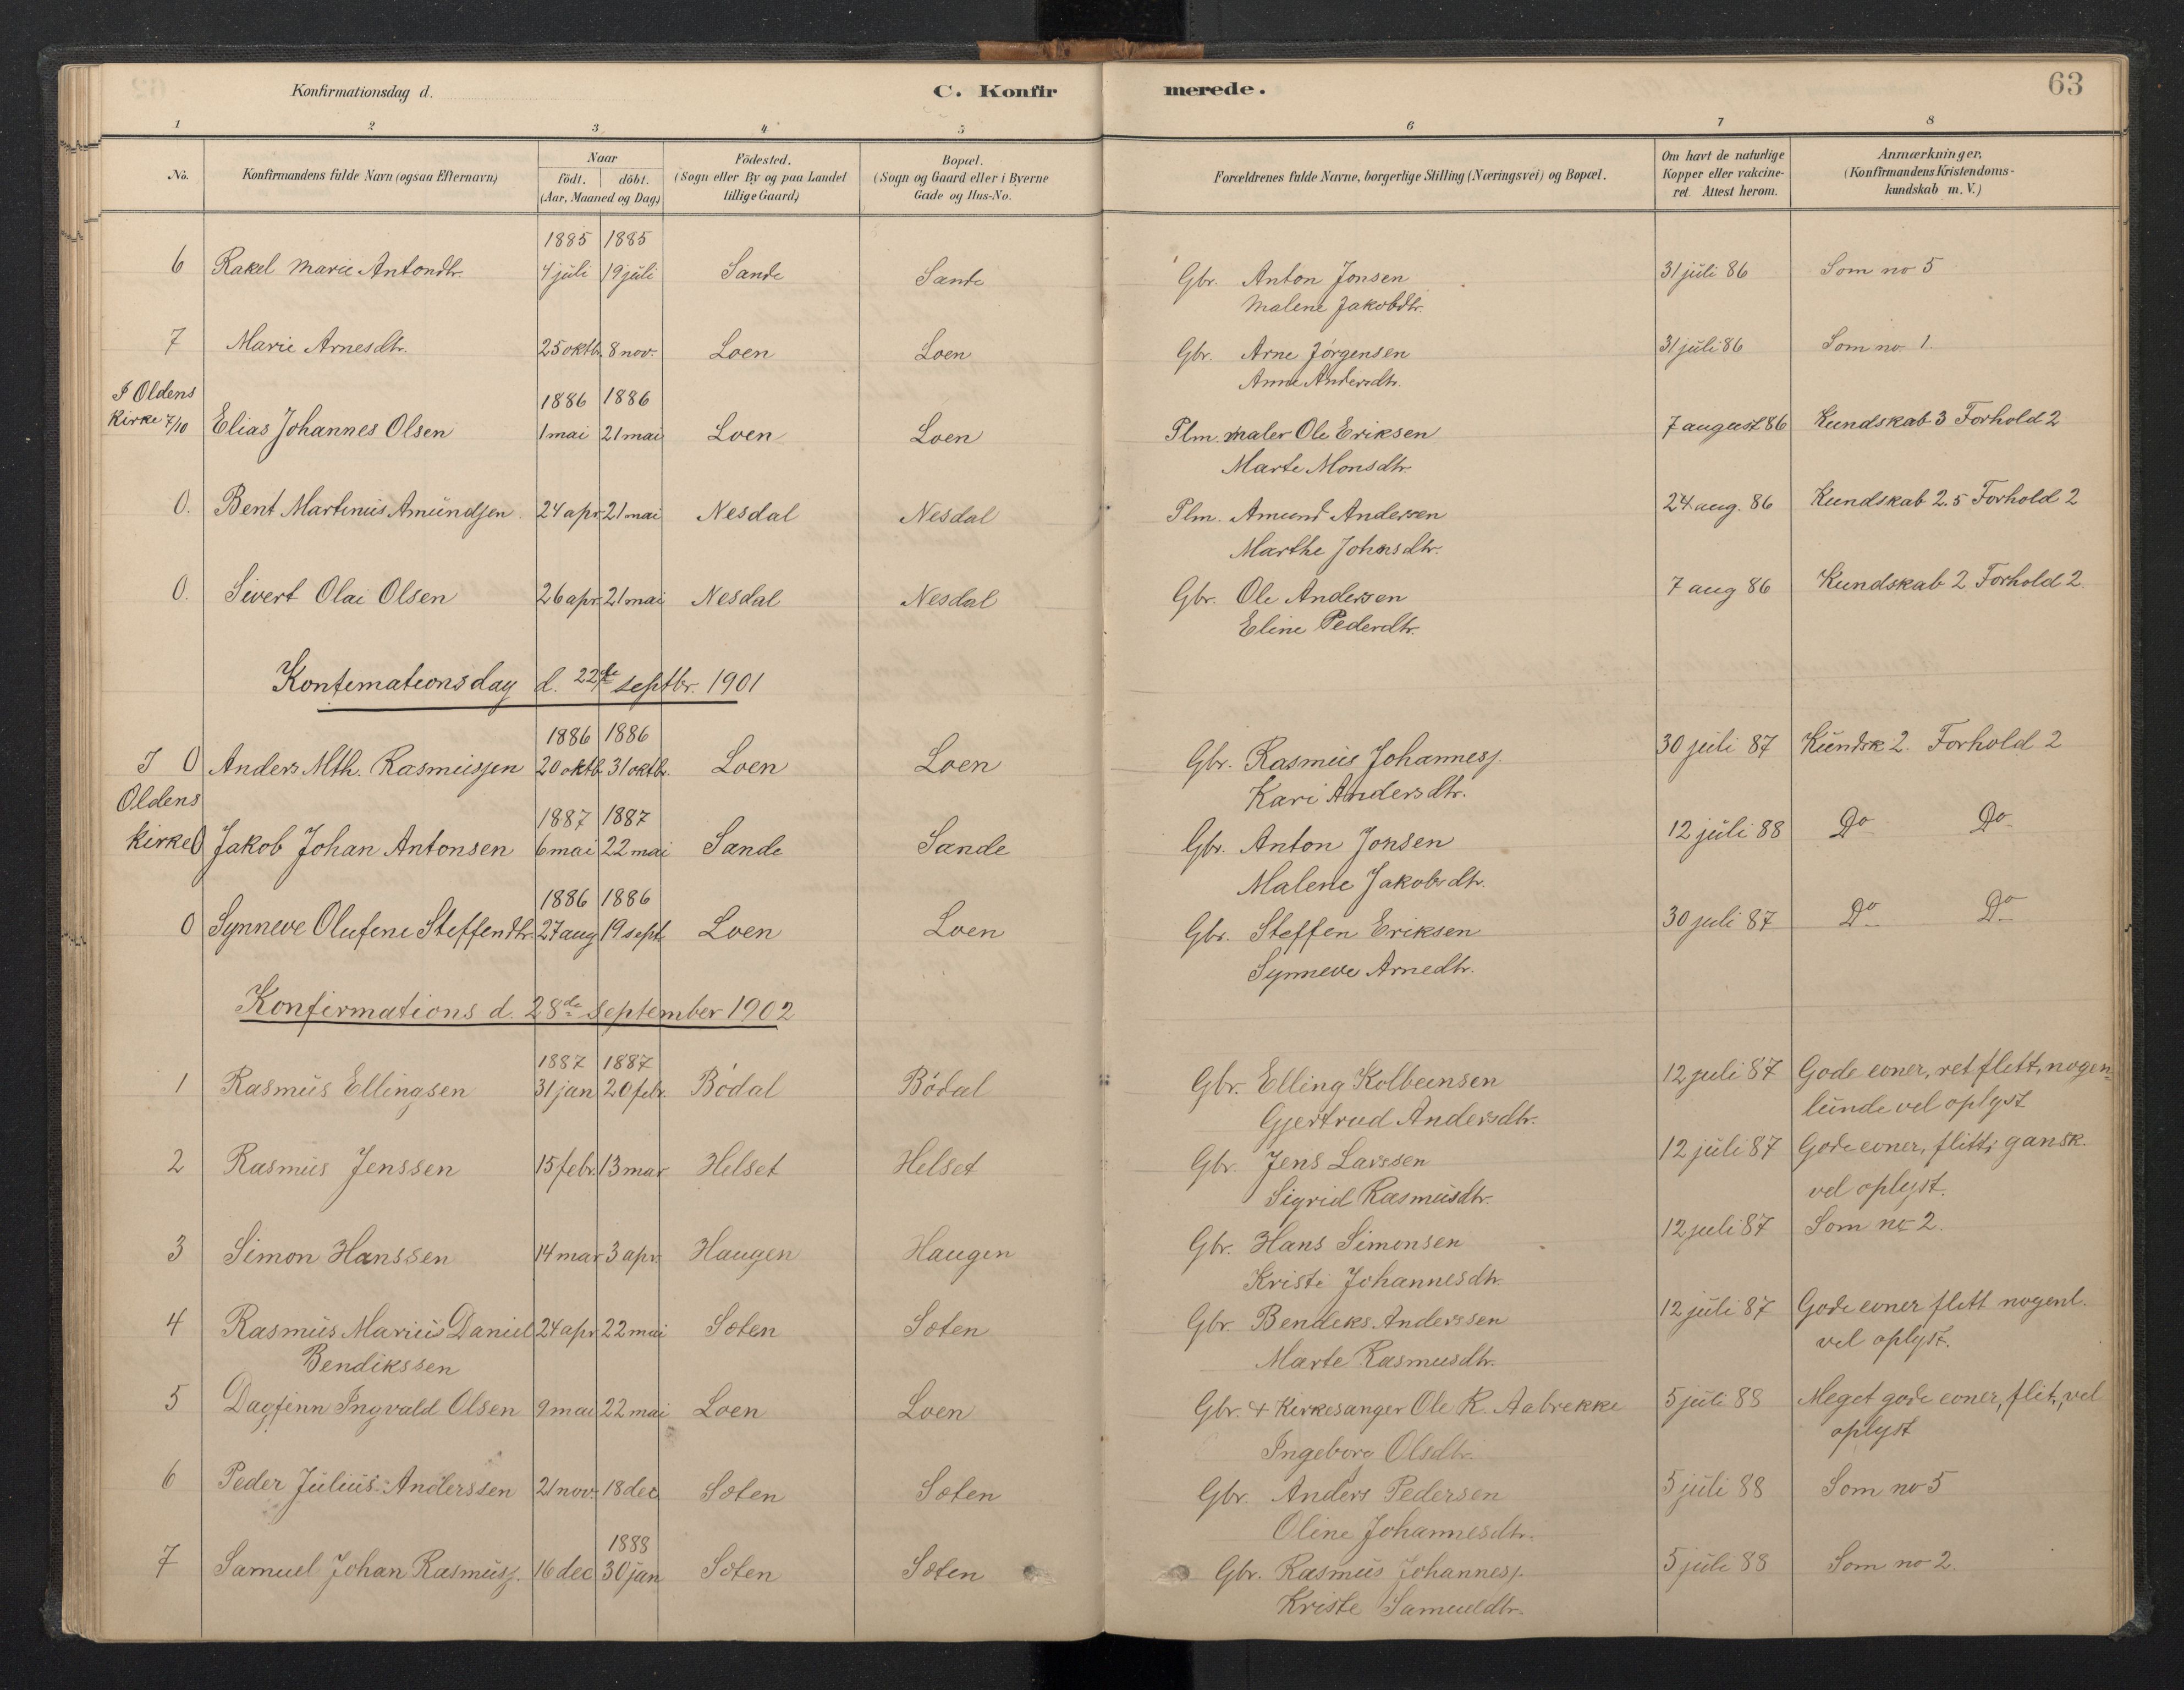 Konfirmationsdag d. C. Konfir merede. 63
1 2 3 4 5 6 7 8
No. Konfirmandens fulde Navn (ogsaa Efternavn) Naar födt. döbt. (Aar, Maaned og Dag) Födested. (Sogn eller By og paa Landet tillige Gaard) Bopæl. (Sogn og Gaard eller i Byerne Gade og Hus-No. Forældrenes fulde Navne, borgerlige Stilling (Næringsvei) og Bopæl. Om havt de naturlige Kopper eller vakcineret. Attest herom. Anmærkninger. (Konfirmandens Kristendomskundskab m. V.)
1885 1885
6 Rakel Marie Antondtr. 4 juli 19 juli Sande Sande Gbr. Anton Jonsen 31 juli 86 Som no 5
Malene Jakobdtr.
7 Marie Arnesdtr. 25 oktbr. 8 nov. Loen Loen Gbr. Arne Jörgensen 31 juli 86 Som no 1.
Anne Andersdtr.
I Oldens 1886 1886
Kirke 7/10 Elias Johannes Olsen 1 mai 21 mai Loen Loen Plm. maler Ole Eriksen 7 august 86 Kundskab 3 Forhold 2
Marte Monsdtr.
0. Bent Martinus Amundsen 24 apr. 21 mai Nesdal Nesdal Plm. Amund Andersen 24 aug. 86 Kundskab 2.5 Forhold 2
Marthe Johnsdtr.
0. Sivert Olai Olsen 26 apr. 21 mai Nesdal Nesdal Gbr. Ole Andersen 7 aug 86 Kundskab 2 Forhold 2.
Eline Pederdtr.
Konfimationsdag d. 22de septbr. 1901
1886 1886
I 0 Anders Mth. Rasmussen 20 oktb. 31 oktbr. Loen Loen Gbr. Rasmus Johanness. 30 juli 87 Kundsk 2. Forhold 2
Oldens Kari Andersdtr.
1887 1887
kirke 0 Jakob Johan Antonsen 6 mai 22 mai Sande Sande Gbr. Anton Jonsen 12 juli 88 Do Do
Malene Jakobsdtr.
1886 1886
0 Synneve Olufine Steffendtr. 27 aug 19 sept. Loen Loen Gbr. Steffen Eriksen 30 juli 87 Do Do
Synneve Arnedtr.
Konfirmations d. 28de september 1902
1887 1887
1 Rasmus Ellingsen 31 jan 20 febr. Bödal Bödal Gbr. Elling Kolbeinsen 12 juli 87 Gode evner, ret flitt, nogen=
Gjertrud Andersdtr. lunde vel oplyst
2 Rasmus Jenssen 15 febr. 13 mar Helset Helset Gbr. Jens Larssen 12 juli 87 Gode evner, flitt, gansk.
Sigrid Rasmusdtr. vel oplyst.
3 Simon Hanssen 14 mar 3 apr. Haugen Haugen Gbr. Hans Simonsen 12 juli 87 Som no 2.
Kristi Johannesdtr.
4 Rasmus Marius Daniel 24 apr 22 mai Sæten Sæten Gbr. Bendiks Anderssen 12 juli 87 Gode evner flitt nogenl.
Bendikssen Marte Rasmusdtr. vel oplyst.
5 Dagfinn Ingvald Olsen 9 mai 22 mai Loen Loen Gbr. + Kirkesanger Ole R. Aabrekke 5 juli 88 Meget gode evner, flit, vel
Ingeborg Olsdtr. oplyst
6 Peder Julius Anderssen 21 nov. 18 dec. Sæten Sæten Gbr. Anders Pedersen 5 juli 88 Som no 5
Oline Johannesdtr.
1888
7 Samuel Johan Rasmuss. 16 dec 30 jan Sæten Sæten Gbr. Rasmus Johanness. 5 juli 88 Som no 2.
Kriste Samueldtr.